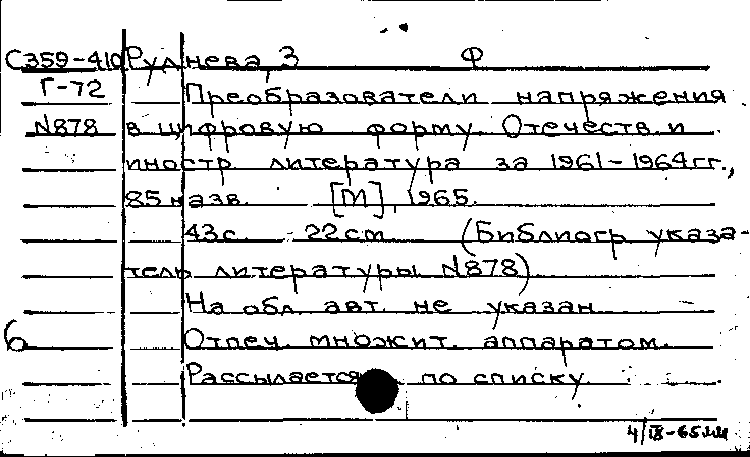 С359-410 Руднева, З Ф
Г-72 Преобразователи напряжения
N878 в цифровую форму. Отечеств. и
иностр. литература за 1961-1964 гг.,
85 назв. [М], 1965.
43 с. 22 см. (Библиогр. указа-
тель литературы N878)
На обл. авт. не указан.
Отпеч. множит. аппаратом.
б
Рассылается по списку.
4/IX-65